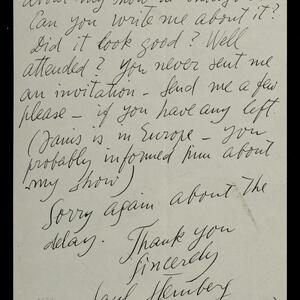 about my show in
Can you write me about it?
Did it look good? Well
attended? You never sent me
an invitation – Send me a few
please – if you have any left.
(Janis is in Europe – you
probably informed him about
my show)
Sorry again about the
delay. Thank you
Sincerely
Saul Steinberg